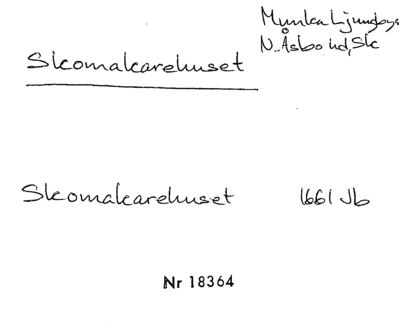 Skomakarehuset
Munka Ljungbys
N. Åsbo hd, Sk
Skomakarehuset 1661 Jb
Nr 18364